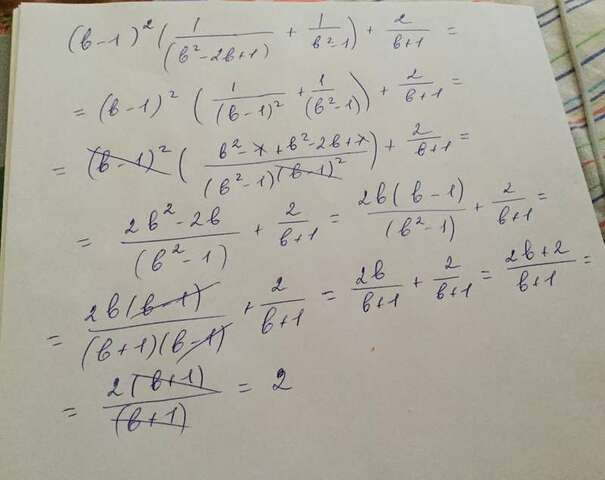 (b-1)² (1/(b²-2b+1) + 1/(b²-1)) + 2/(b+1) =
= (b-1)² (1/(b-1)² + 1/(b²-1)) + 2/(b+1) =
= (b-1)² ((b²-1+b²-2b+1)/((b²-1)(b-1)²)) + 2/(b+1) =
= (2b²-2b)/(b²-1) + 2/(b+1) = 2b(b-1)/(b²-1) + 2/(b+1) =
= 2b(b-1)/((b+1)(b-1)) + 2/(b+1) = 2b/(b+1) + 2/(b+1) = (2b+2)/(b+1) =
= 2(b+1)/(b+1) = 2